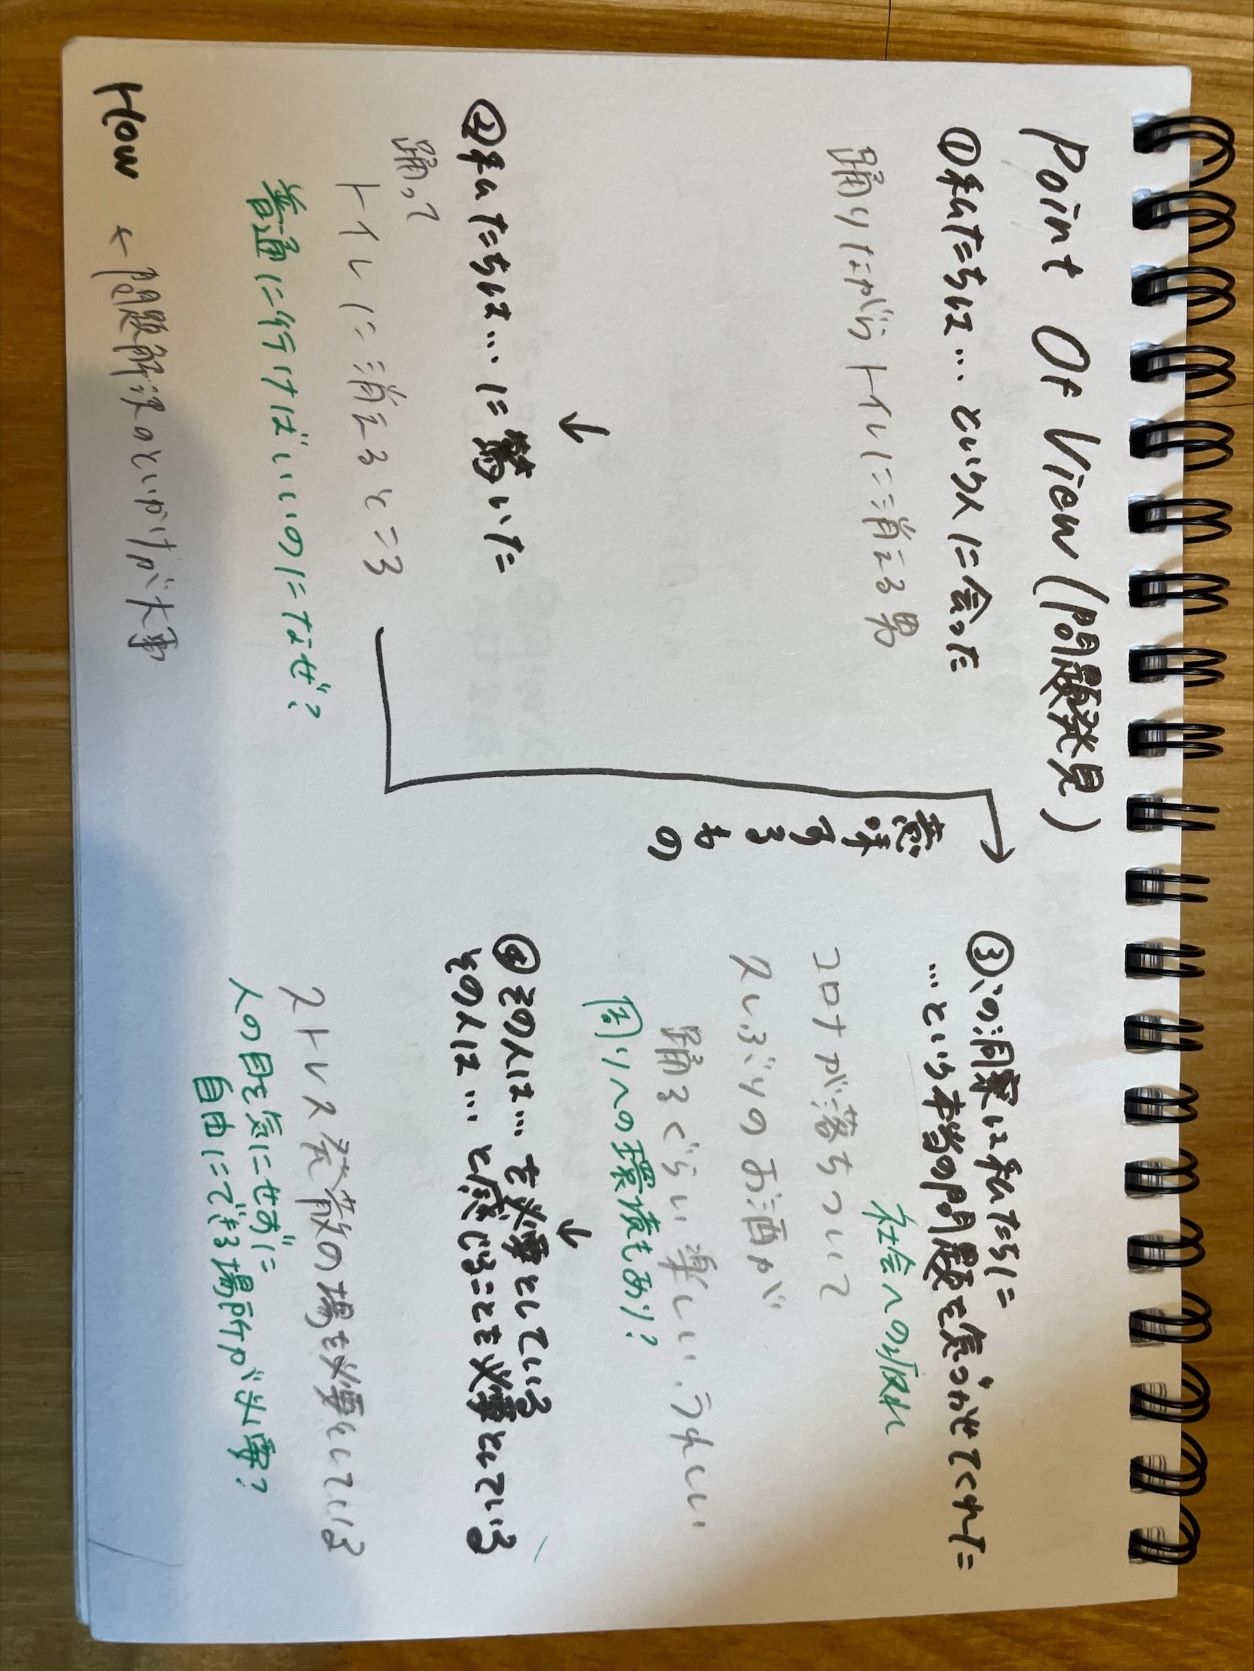 Point Of View (問題発見)
①私たちは… という人に会った
踊りながらトイレに消える男
↓
②私たちは… に驚いた
踊って
トイレに消えるところ
普通に行けばいいのになぜ?
意味するもの
③この洞察は私たちに
…という本当の問題を気づかせてくれた
社会への疲れ
コロナが落ちついて
久しぶりのお酒が
踊るぐらい楽しい、うれしい
周りへの環境もあり?
↓
④その人は… を必要としている
その人は… と感じることを必要としている
ストレス発散の場を必要としている
人の目を気にせずに
自由にできる場所が必要?
How ←問題解決のといかけが大事